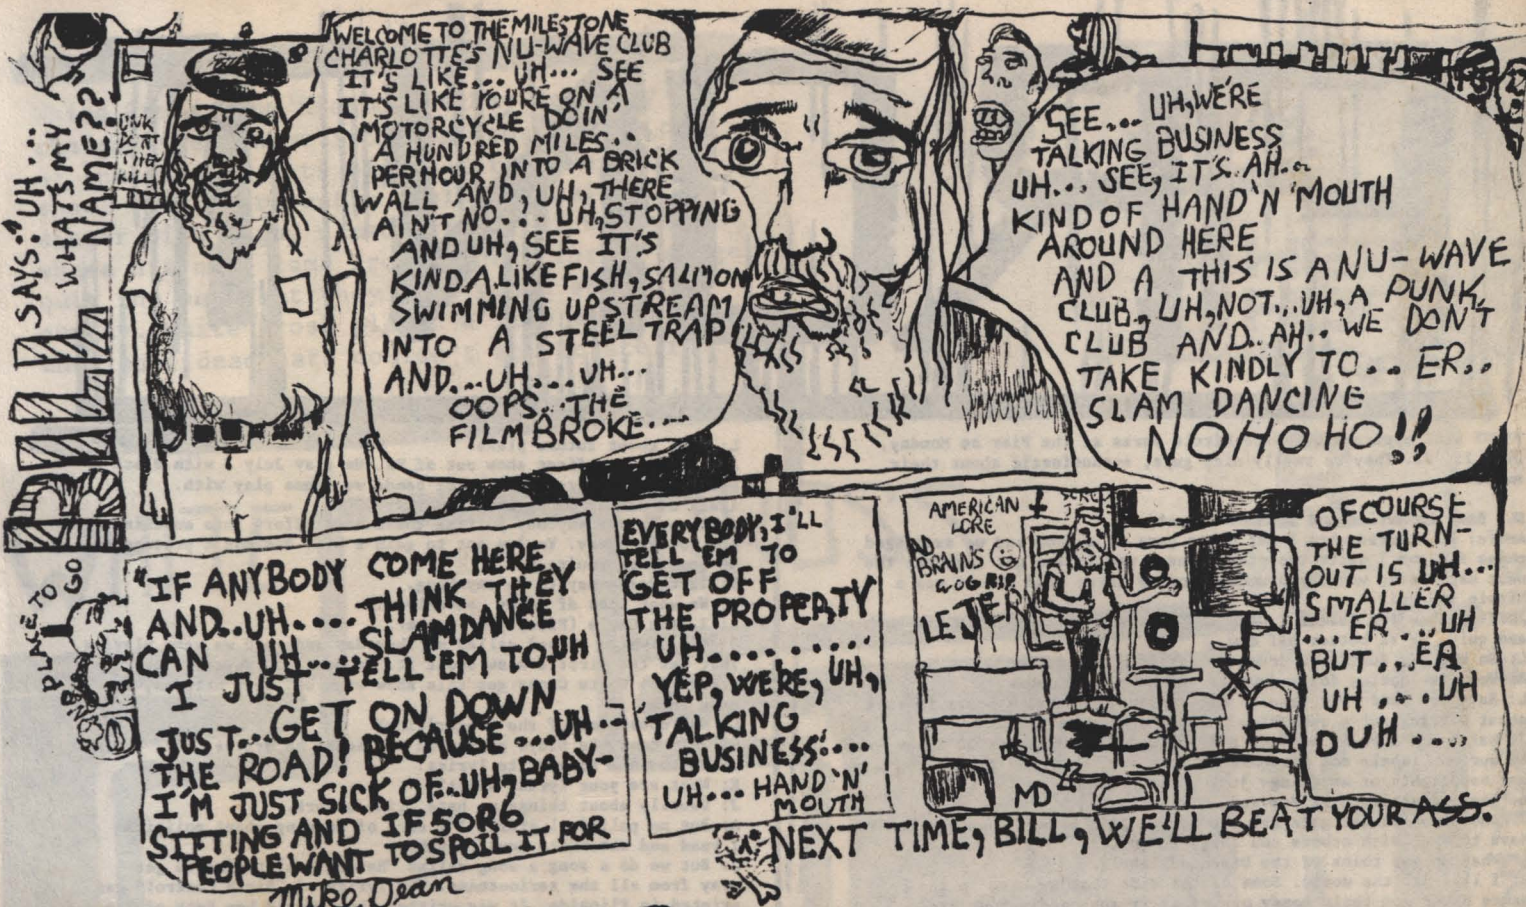 BILL SAYS: "UH...
WHATS MY
NAME??"
WELCOME TO THE MILESTONE
CHARLOTTE'S NU-WAVE CLUB
IT'S LIKE... UH... SEE
IT'S LIKE YOURE ON A
MOTORCYCLE DOIN'
A HUNDRED MILES..
PER HOUR INTO A BRICK
WALL AND, UH, THERE
AIN'T NO... UH, STOPPING
AND UH, SEE IT'S
KINDA LIKE FISH, SALMON
SWIMMING UPSTREAM
INTO A STEEL TRAP
AND...UH...UH...
OOPS...THE
FILM BROKE....
SEE... UH, WE'RE
TALKING BUSINESS
UH... SEE, IT'S AH..
KIND OF HAND 'N' MOUTH
AROUND HERE
AND A THIS IS A NU-WAVE
CLUB, UH, NOT...UH, A PUNK
CLUB AND..AH.. WE DON'T
TAKE KINDLY TO.. ER..
SLAM DANCINE
NOHOHO!!
PLAKE TO GO
"IF ANYBODY COME HERE
AND..UH....THINK THEY
CAN UH....SLAMDANCE
I JUST TELL EM TO, UH
JUST...GET ON DOWN
THE ROAD! BECAUSE...UH...
I'M JUST SICK OF..UH, BABY-
SITTING AND IF 5 OR 6
PEOPLE WANT TO SPOIL IT FOR
Mike Dean
EVERYBODY, I'LL
TELL 'EM TO
GET OFF
THE PROPERTY
UH.........
YEP, WERE, UH,
TALKING
BUSINESS....
UH... HAND 'N'
MOUTH
AMERICAN
LORE
BRAINS
LEJER
MD
OF COURSE
THE TURN-
OUT IS UH...
SMALLER
...ER...UH
BUT...ER
UH...UH
DUH....
NEXT TIME, BILL, WE'LL BEAT YOUR ASS.